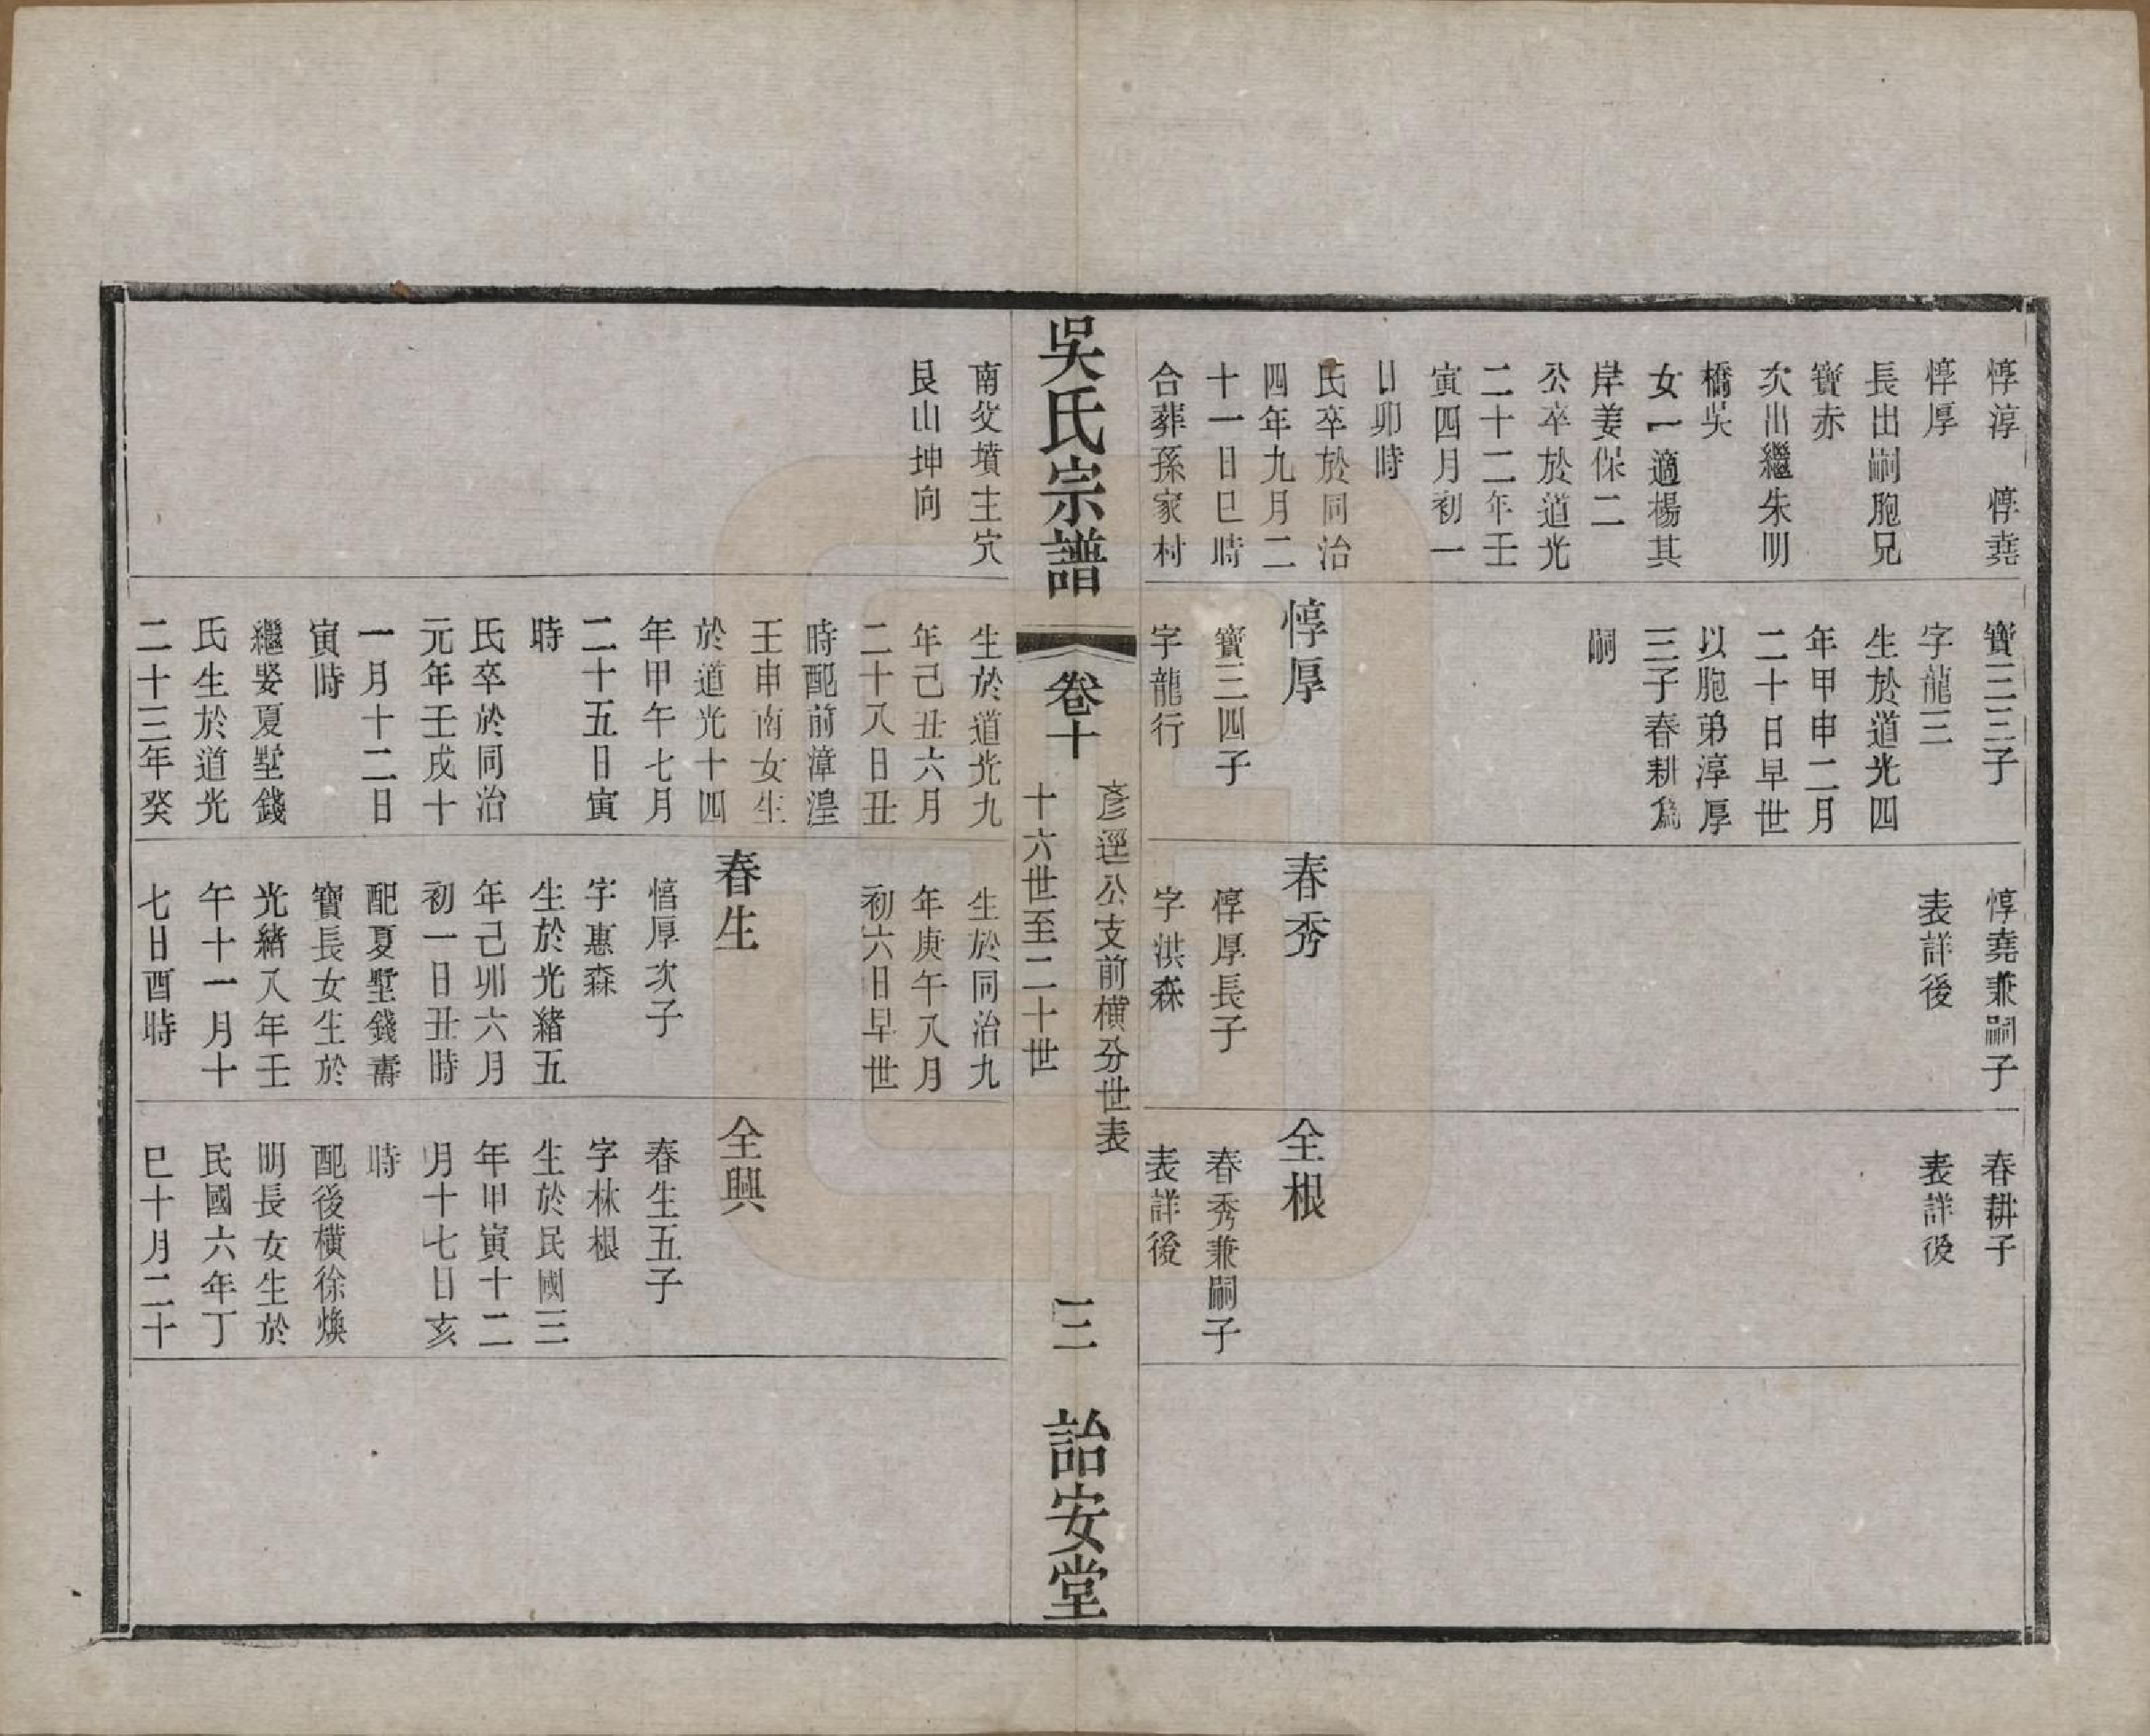 惇淳　惇堯
惇厚
長出嗣胞兄
寶赤
次出繼朱明
橋吳
女一適楊其
岸姜保二
公卒於道光
二十二年壬
寅四月初一
日卯時
氏卒於同治
四年九月二
十一日巳時
合葬孫家村
寶三三子
字龍三
生於道光四
年甲申二月
二十日早世
以胞弟淳厚
三子春耕爲
嗣
惇厚
寶三四子
字龍行
惇堯兼嗣子
表詳後
春秀
惇厚長子
字洪森
春耕子
表詳後
全根
春秀兼嗣子
表詳後
吳氏宗譜
卷十
彥逕公支前橫分世表
十六世至二十世
三
詒安堂
南父墳主穴
艮山坤向
生於道光九
年己丑六月
二十八日丑
時配前漳湟
王申南女生
於道光十四
年甲午七月
二十五日寅
時
氏卒於同治
元年壬戌十
一月十二日
寅時
繼娶夏墅錢
氏生於道光
二十三年癸
生於同治九
年庚午八月
初六日早世
春生
惇厚次子
字惠森
生於光緒五
年己卯六月
初一日丑時
配夏墅錢壽
寶長女生於
光緒八年壬
午十一月十
七日酉時
全興
春生五子
字林根
生於民國三
年甲寅十二
月十七日亥
時
配後橫徐煥
明長女生於
民國六年丁
巳十月二十